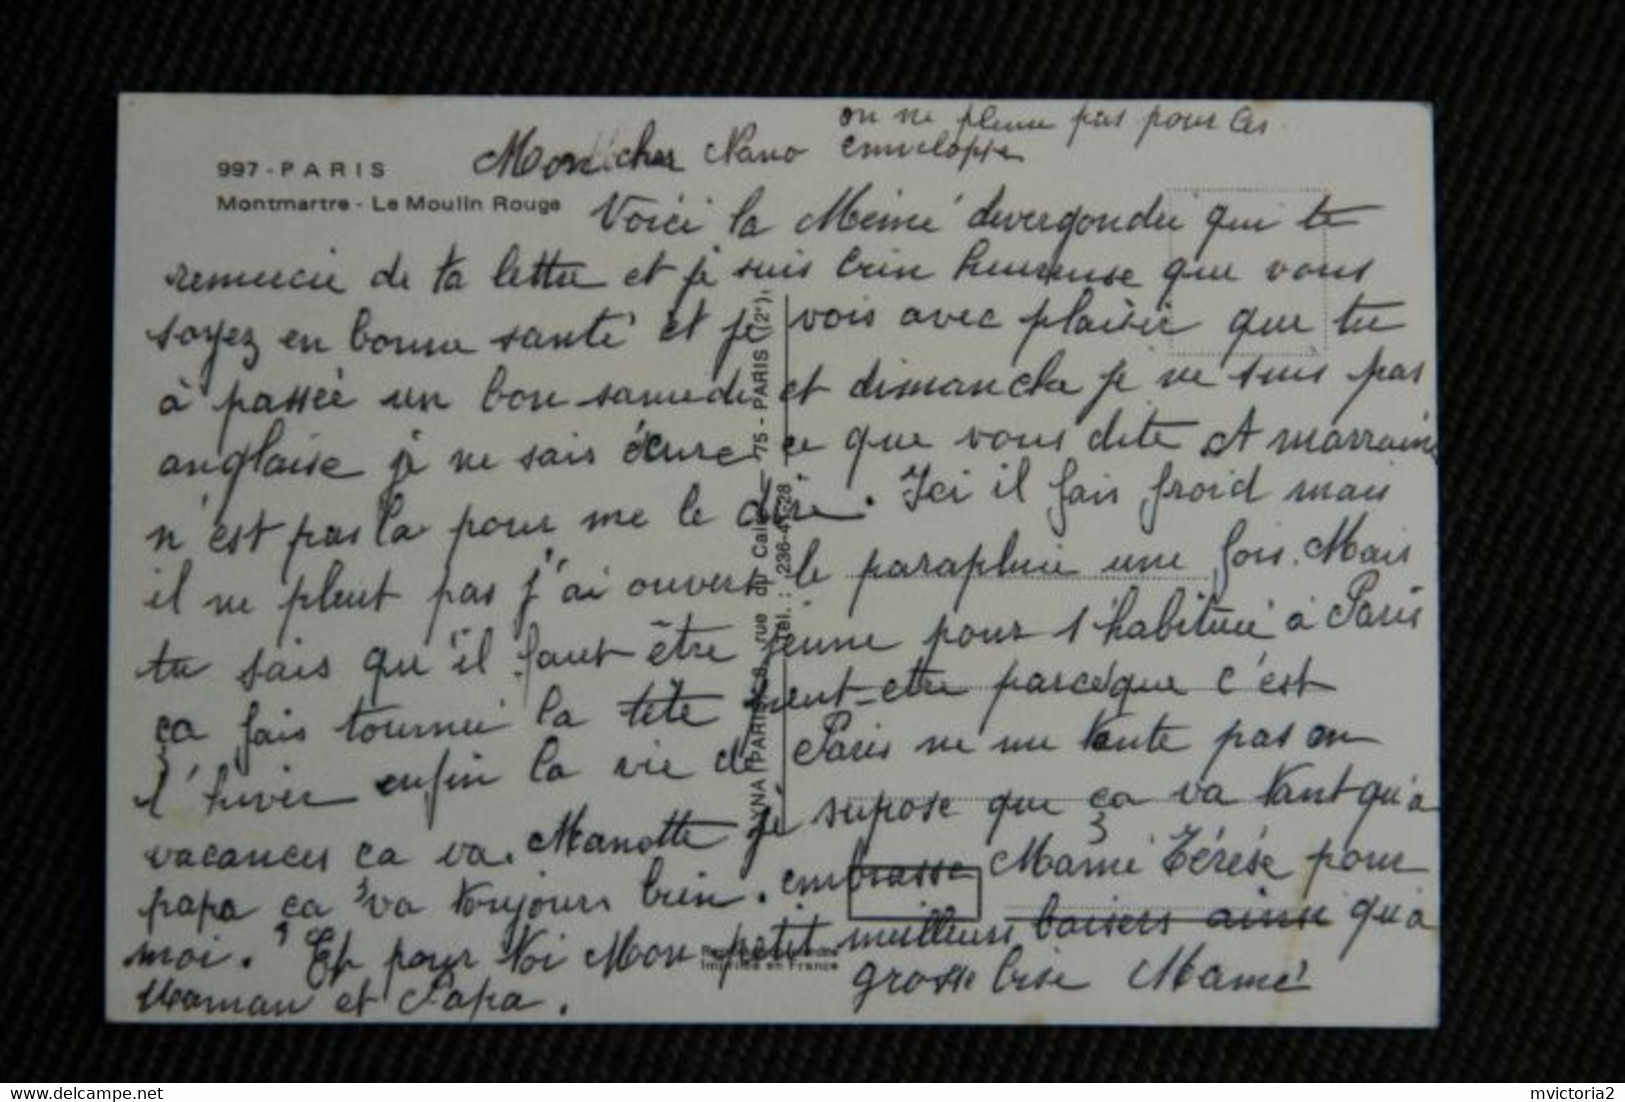 on ne pleure pas pour les
enveloppes
997 - PARIS
Montmartre - Le Moulin Rouge
Mon cher Nano
Voici la Mémé devergondée qui te
remercie de ta lettre et je suis bien heureuse que vous
soyez en bonne santé et je vois avec plaisir que tu
à passée un bon samedi et dimanche je ne suis pas
anglaise je ne sais écrire ce que vous dite et marraine
n'est pas la pour me le dire. Ici il fais froid mais
il ne pleut pas j'ai ouvert le parapluie une fois. Mais
tu sais qu'il faut être jeune pour s'habitué à Paris
ça fais tourner la tête peut-etre parceque c'est
l'hiver enfin la vie de Paris ne me tente pas en
vacances ça va. Manotte je supose que ça va tant qu'a
papa ça va toujours bien. embrasse Mamé Térése pour
moi. Et pour toi Mon petit meilleurs baisers ainsi qu'a
Maman et Papa. grosse bise Mamé
75 - PARIS (2e)
rue du Caire
Tél. : 236-
Imprimé en France
mvictoria2
https://www.delcampe.net